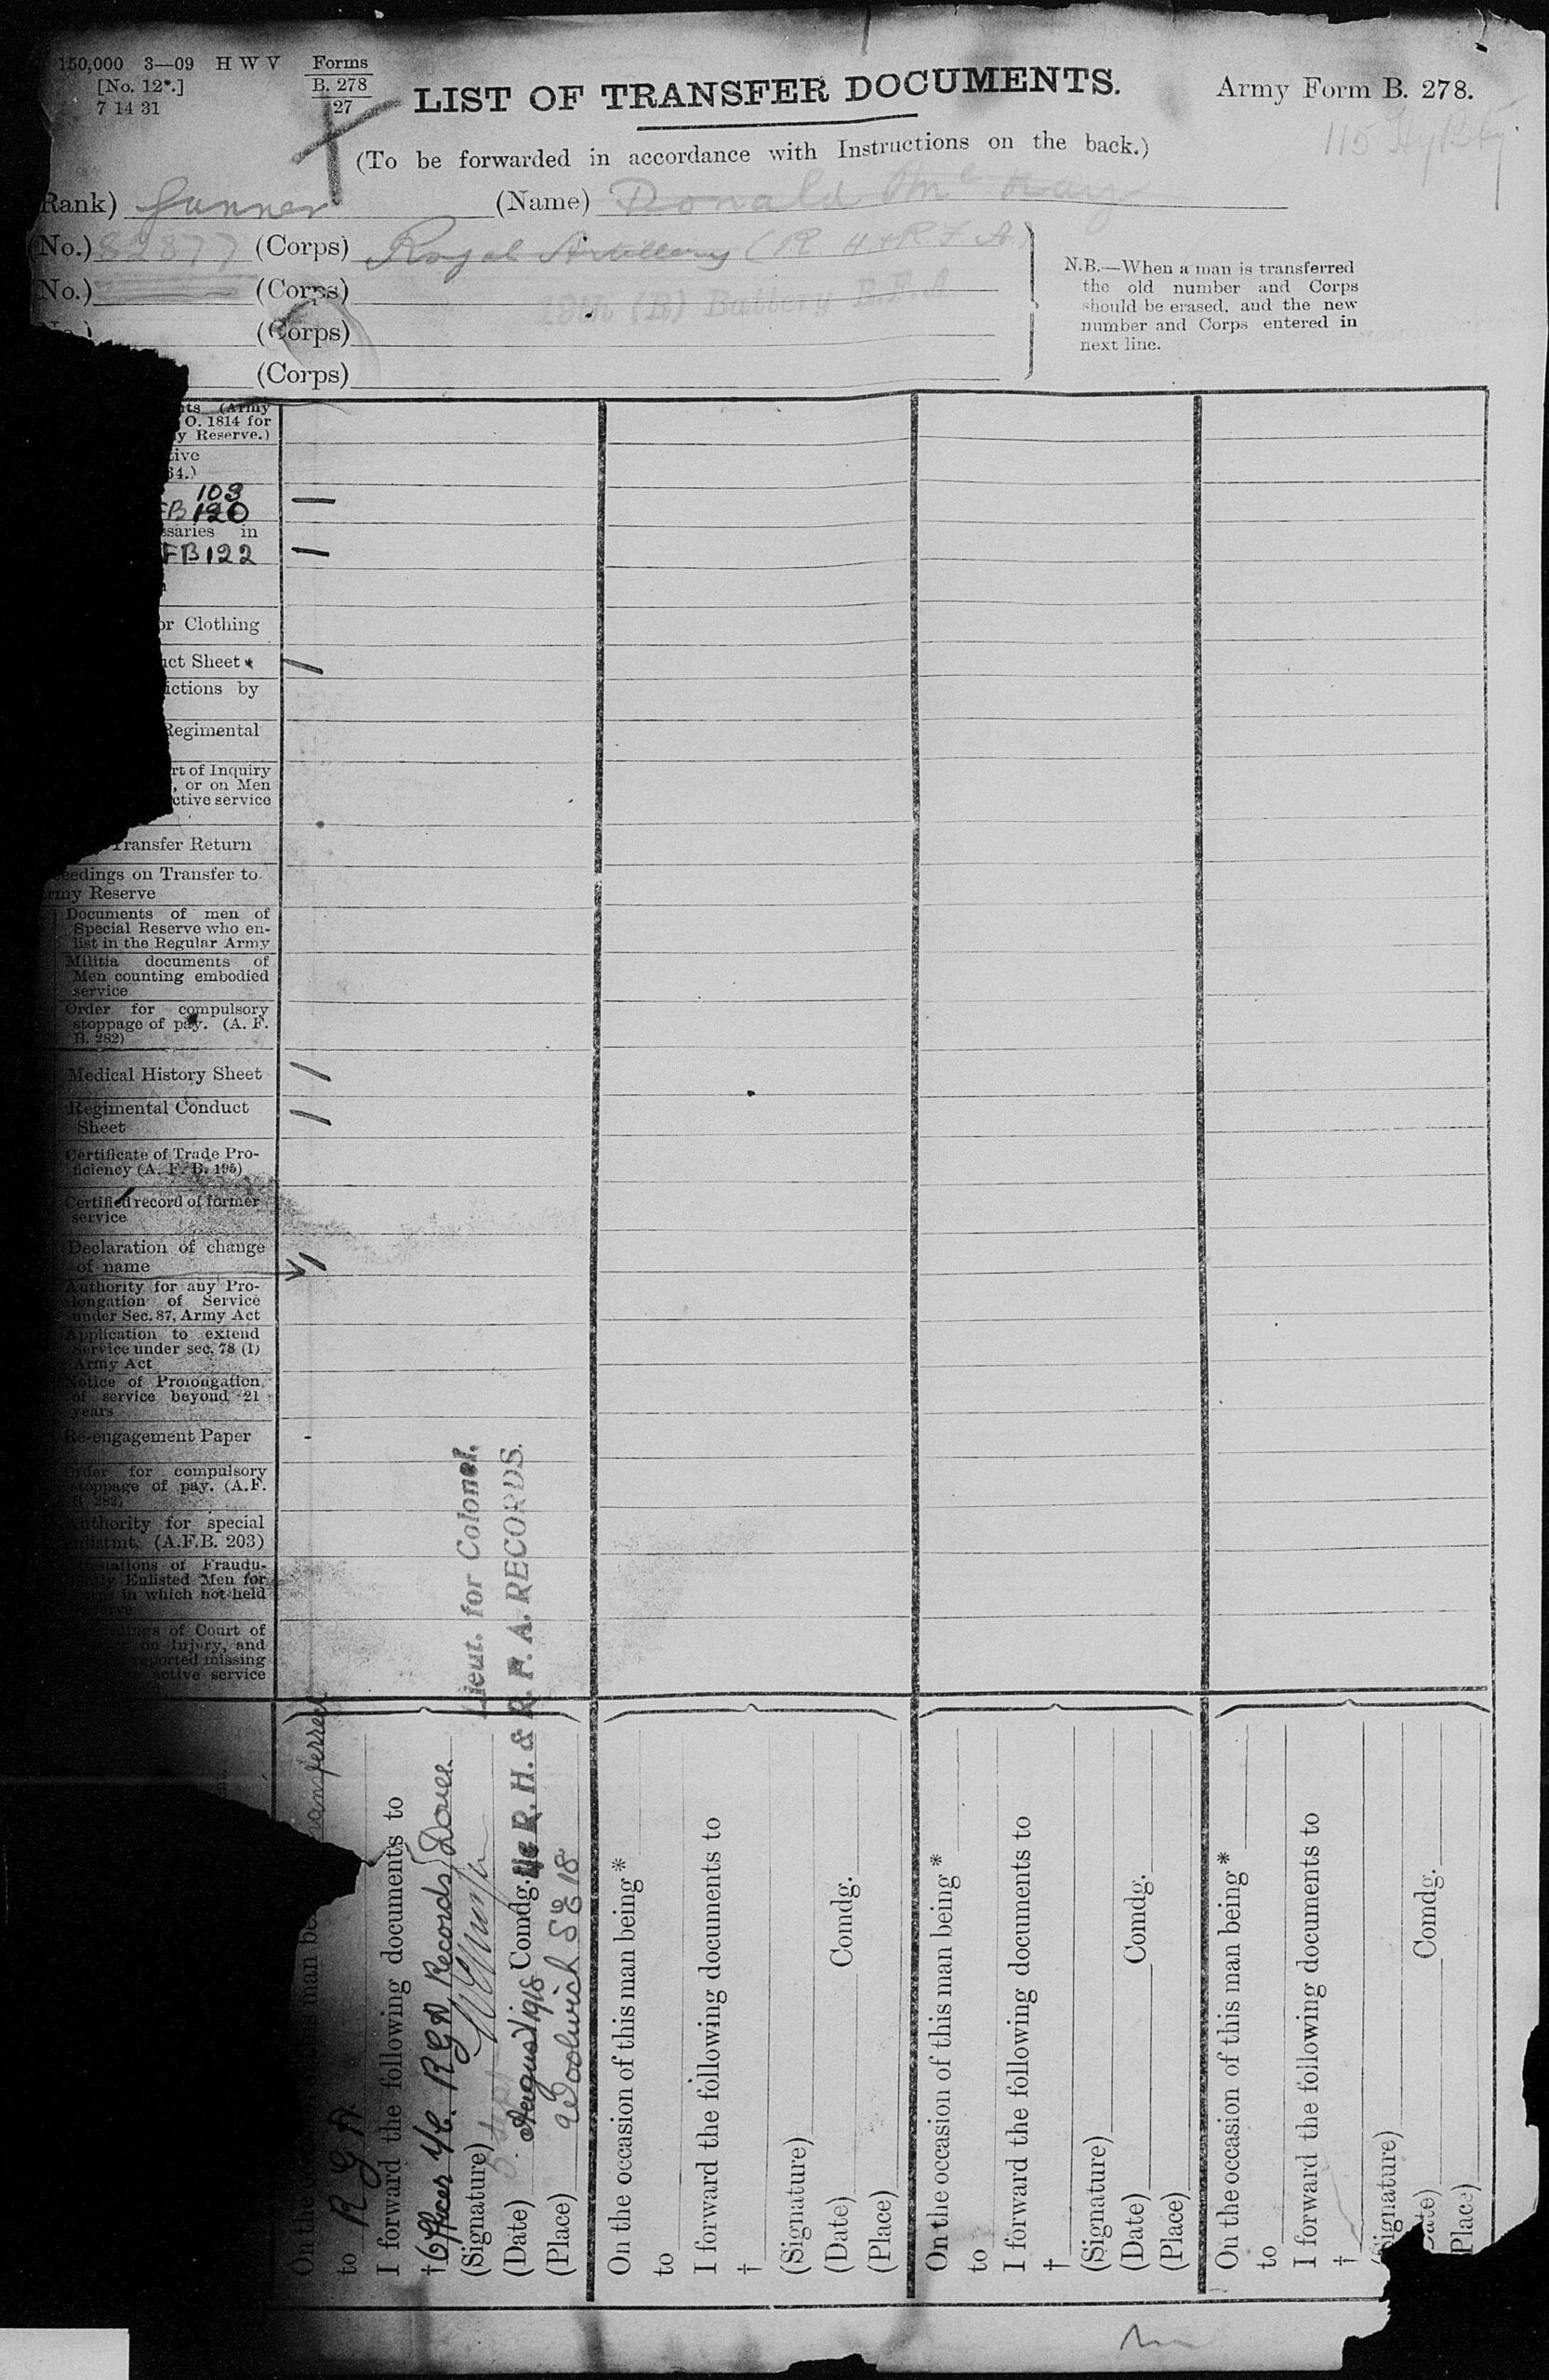 150,000 3—09 H W V
[No. 12*.]
7 14 31
Forms
B. 278
27
LIST OF TRANSFER DOCUMENTS.
Army Form B. 278.
115 Hy Bty
(To be forwarded in accordance with Instructions on the back.)
Rank) Gunner (Name) Donald McKay
(No.) 82877 (Corps) Royal Artillery (R H & R F A)
No.) (Corps)
(Corps)
(Corps)
N.B.—When a man is transferred
the old number and Corps
should be erased, and the new
number and Corps entered in
next line.
(Army
O. 1814 for
Reserve.)
103
120
in
FB122
or Clothing
Sheet
by
Regimental
of Inquiry
, or on Men
service
Transfer Return
on Transfer to
Reserve
Documents of men of
Special Reserve who en-
list in the Regular Army
Militia documents of
Men counting embodied
service
Order for compulsory
stoppage of pay. (A. F.
B. 282)
Medical History Sheet
Regimental Conduct
Sheet
Certificate of Trade Pro-
ficiency (A. F. B. 195)
Certified record of former
service
Declaration of change
of name
Authority for any Pro-
longation of Service
under Sec. 87, Army Act
Application to extend
Service under sec. 78 (1)
Army Act
Notice of Prolongation
of service beyond 21
years
Re-engagement Paper
Order for compulsory
stoppage of pay. (A.F.
B. 282)
Authority for special
(A.F.B. 203)
of Fraudu-
Enlisted Men for
in which not held
of Court of
on Injury, and
reported missing
active service
On the this man
to R G A
I forward the following documents to
† Officer i/c. R G A Records Dover
(Signature)
Lieut. for Colonel.
(Date) August 1918 Comdg. i/c R. H. & R. F. A. RECORDS.
(Place) Woolwich SE 18
On the occasion of this man being *
to
I forward the following documents to
†
(Signature)
(Date) Comdg.
(Place)
On the occasion of this man being *
to
I forward the following documents to
†
(Signature)
(Date) Comdg.
(Place)
On the occasion of this man being *
to
I forward the following documents to
†
(Signature)
Comdg.
Place)